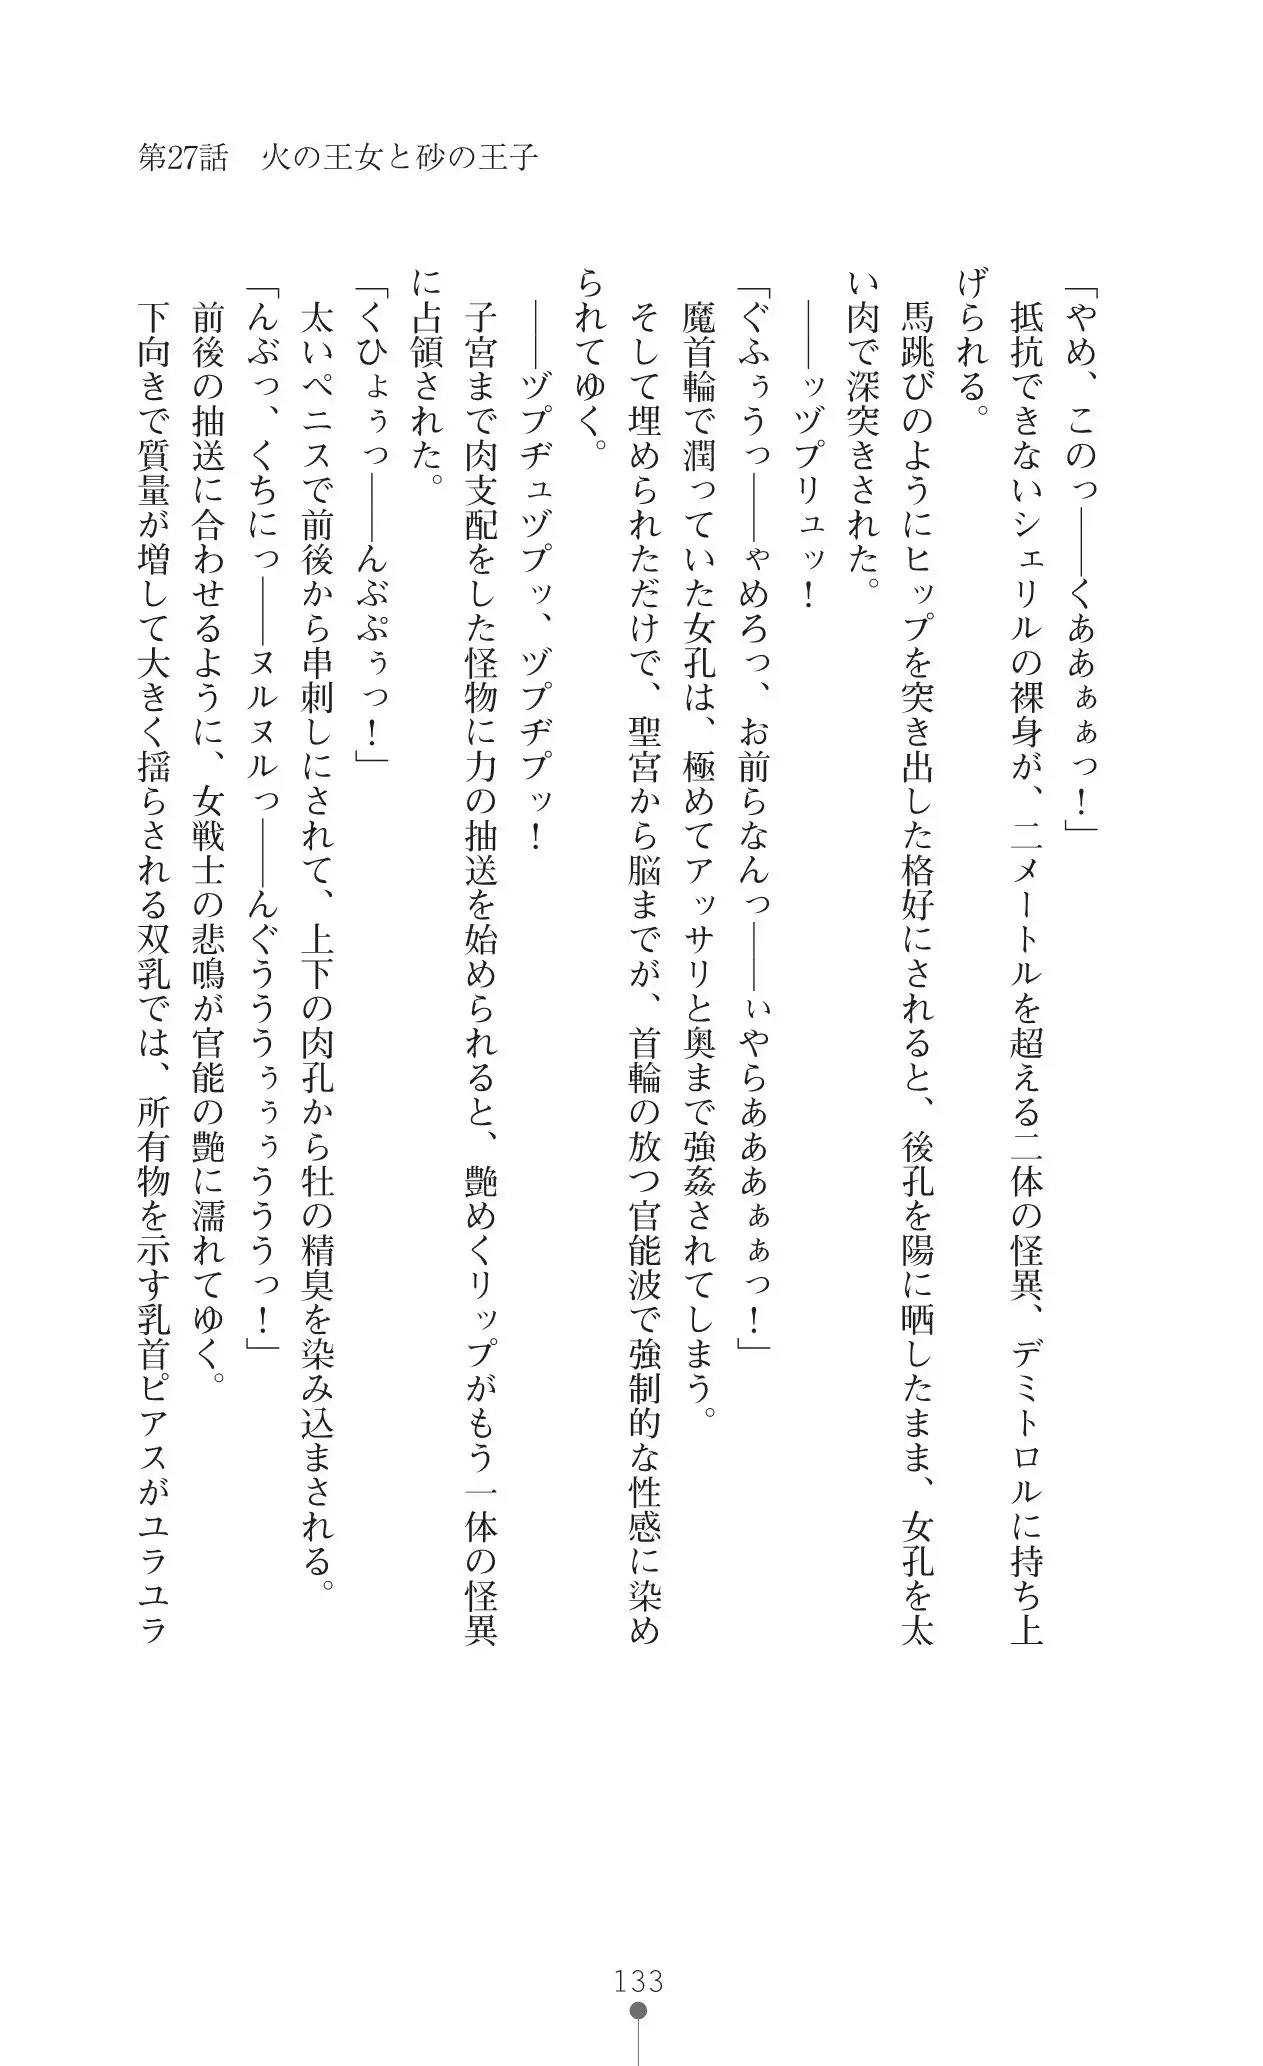 第27話　火の王女と砂の王子
「やめ、このっ――くああぁぁっ！」
抵抗できないシェリルの裸身が、二メートルを超える二体の怪異、デミトロルに持ち上
げられる。
馬跳びのようにヒップを突き出した格好にされると、後孔を陽に晒したまま、女孔を太
い肉で深突きされた。
――ッヅプリュッ！
「ぐふぅうっ――ゃめろっ、お前らなんっ――ぃやらあああぁぁっ！」
魔首輪で潤っていた女孔は、極めてアッサリと奥まで強姦されてしまう。
そして埋められただけで、聖宮から脳までが、首輪の放つ官能波で強制的な性感に染め
られてゆく。
――ヅプヂュヅプッ、ヅプヂプッ！
子宮まで肉支配をした怪物に力の抽送を始められると、艶めくリップがもう一体の怪異
に占領された。
「くひょぅっ――んぶぷぅっ！」
太いペニスで前後から串刺しにされて、上下の肉孔から牡の精臭を染み込まされる。
「んぶっ、くちにっ――ヌルヌルっ――んぐうううぅぅぅうううっ！」
前後の抽送に合わせるように、女戦士の悲鳴が官能の艶に濡れてゆく。
下向きで質量が増して大きく揺らされる双乳では、所有物を示す乳首ピアスがユラユラ
133